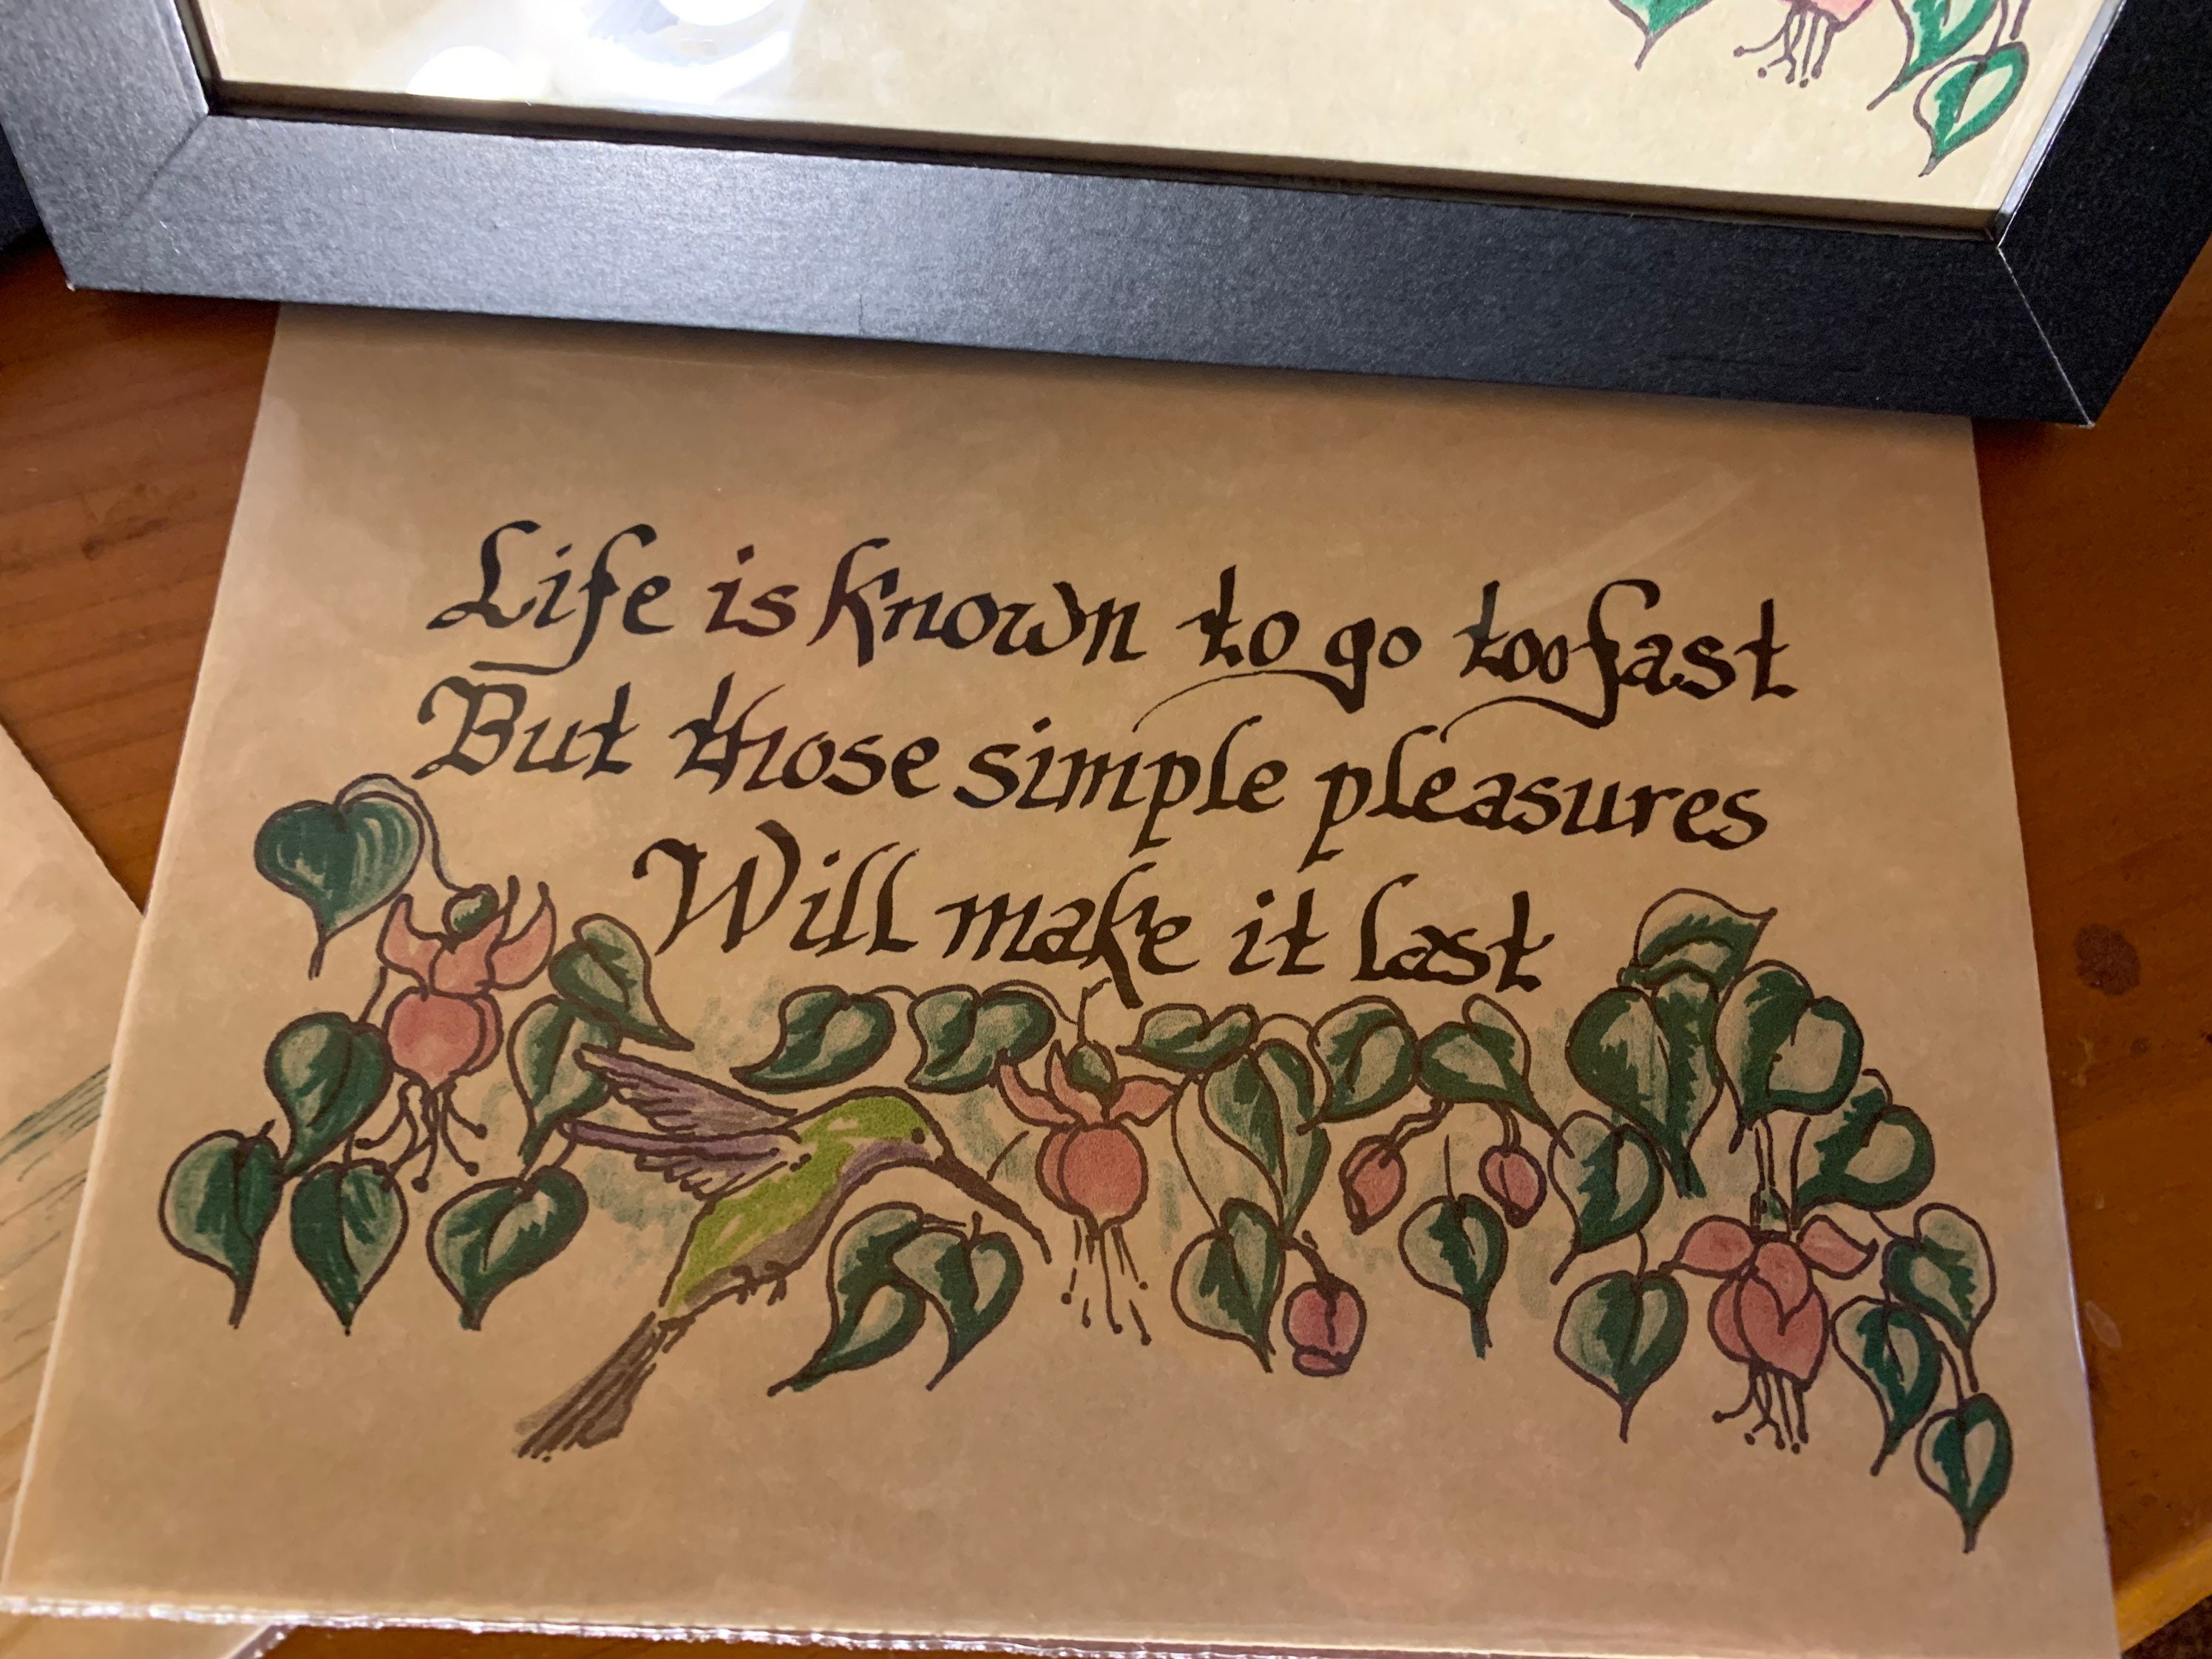 Life is known to go too fast
But those simple pleasures
Will make it last